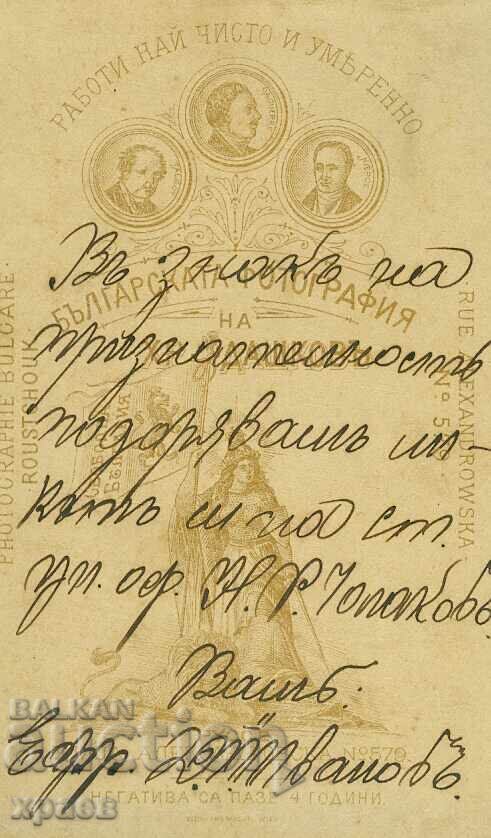 РАБОТИ НАЙ ЧИСТО И УМѢРЕННО
БЪЛГАРСКАТА ФОТОГРАФИЯ
НА
PHOTOGRAPHIE BULGARE
ROUSTCHOUK
RUE ALEXANDROWSKA
No 570
Въ знакъ на
признателность
подарявамъ ли-
кътъ ми на ст.
уп. оф. Н. Р. Чолаковъ
Вашъ:
Ефр. Ивановъ
No 570
НЕГАТИВА СА ПАЗЕ 4 ГОДИНИ.
BALKAN
auction
храсев